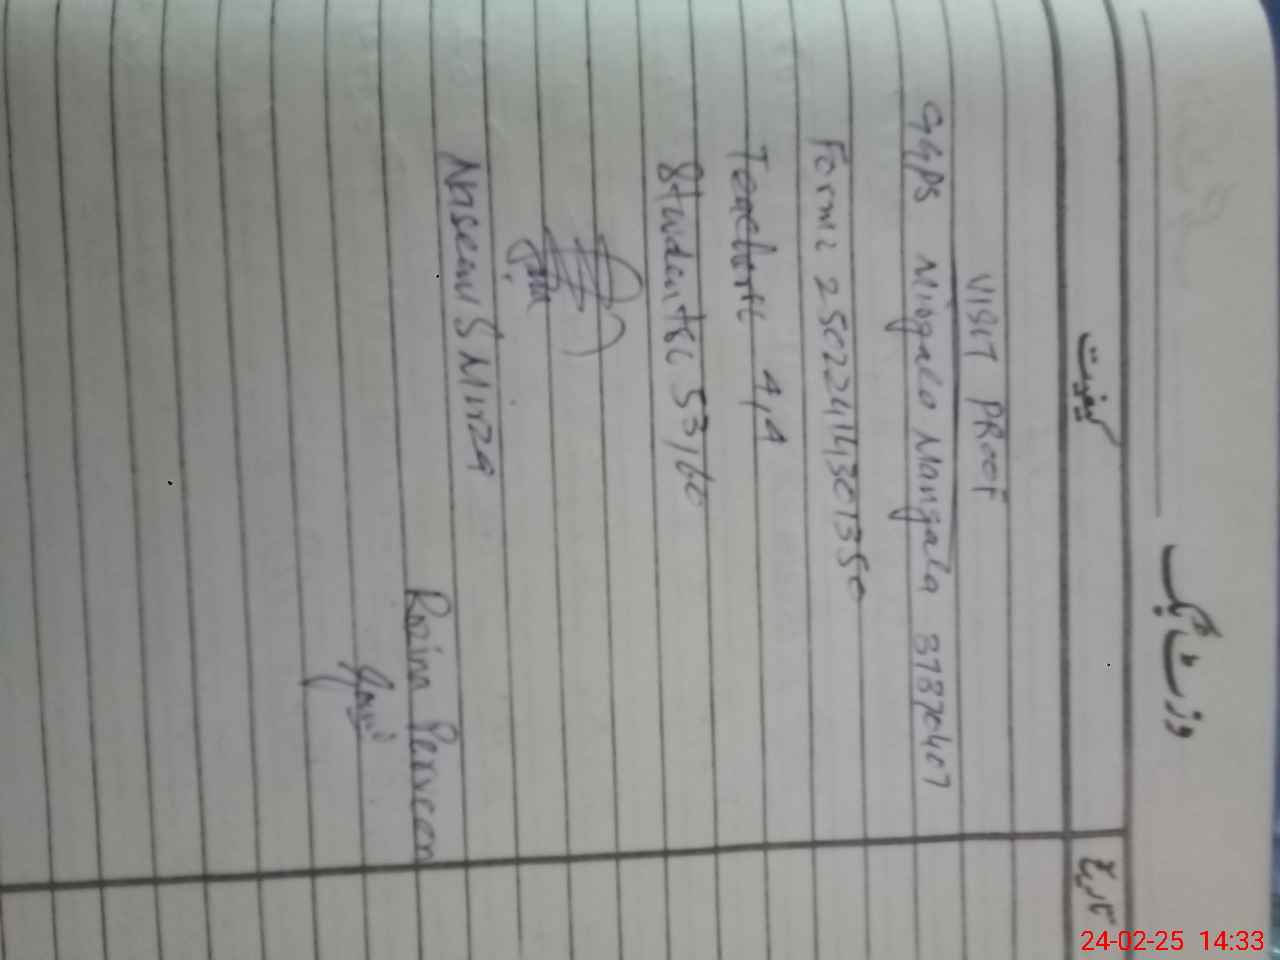 وزٹ بک
کیفیت
تاریخ
VISIT PROOF
GGPS Miogalo Mangala 37370407
Form: 25022414301350
Teachers: 4,4
Students: 53/60
Nuseem S Mirza
Rozina Perveen
24-02-25 14:33